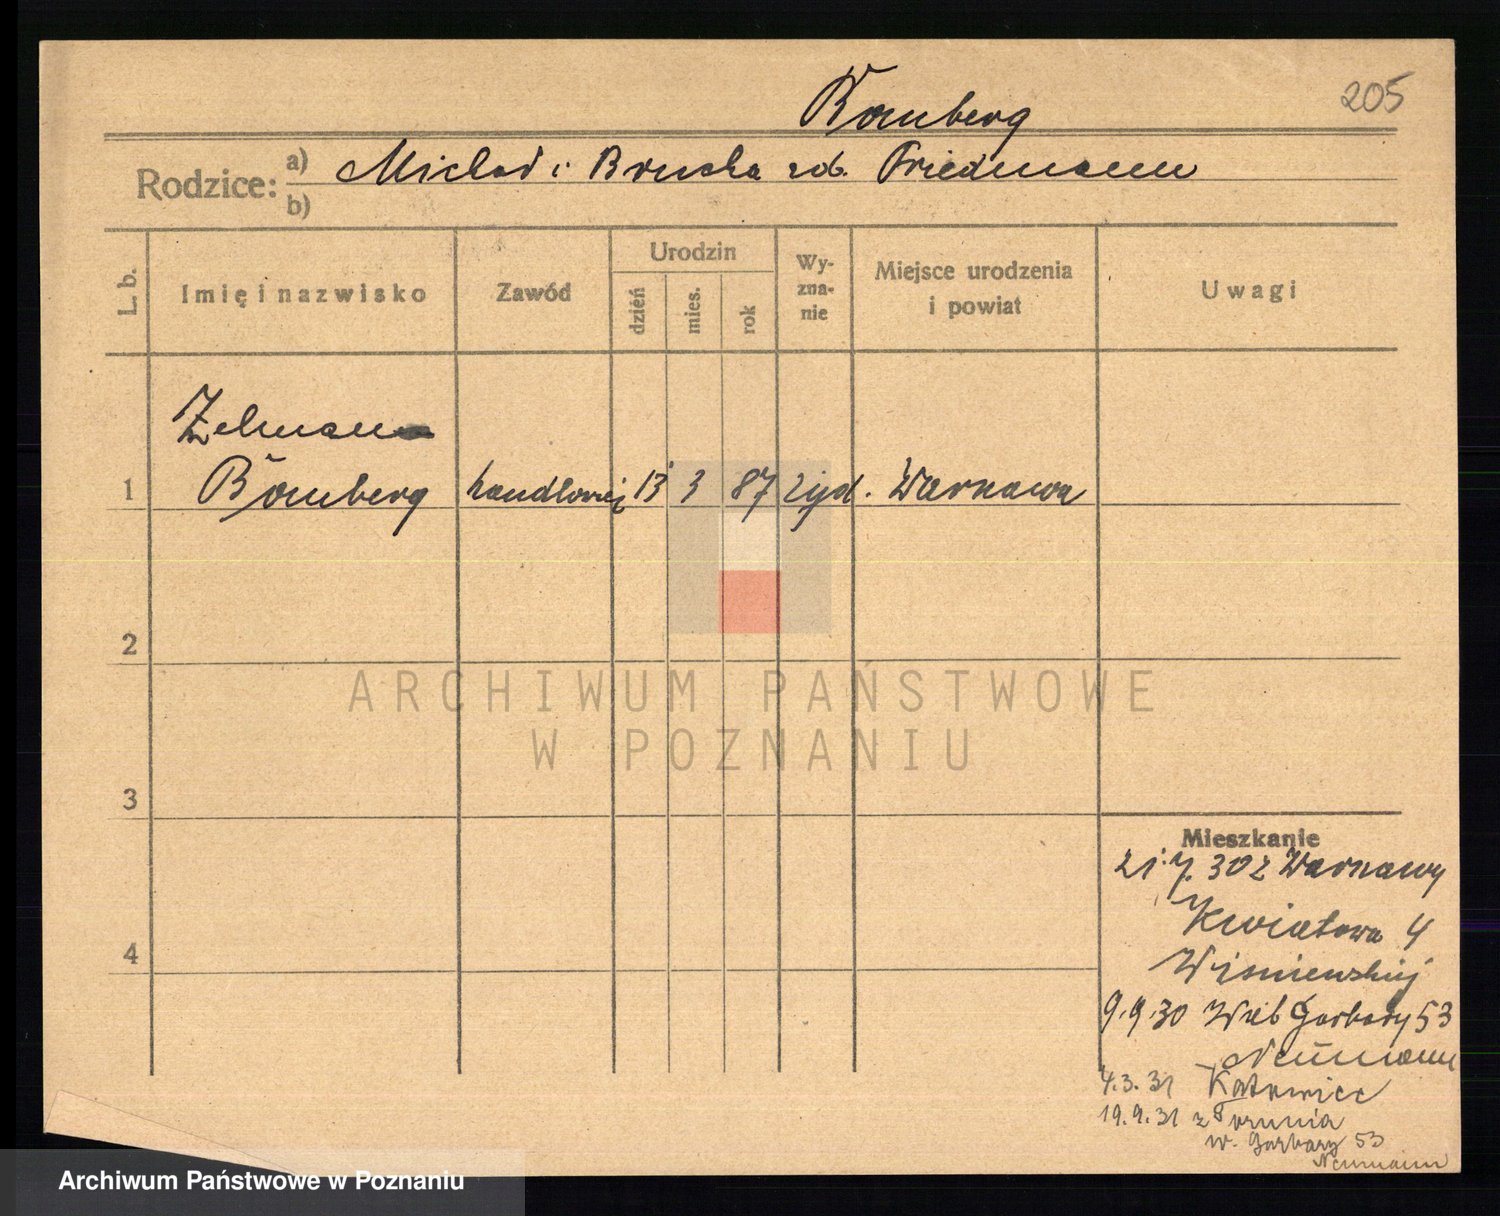 Bomberg
205
Rodzice:
a) Michał i Brucha zd. Friedmann
b)
L. b.
Imię i nazwisko
Zawód
Urodzin
dzień
mies.
rok
Wy-
zna-
nie
Miejsce urodzenia
i powiat
Uwagi
Zelman
1 Bomberg handlowiec 13 3 87 żyd. Warszawa
2
3
4
Mieszkanie
21.7.30 z Warszawy
Kwiatowa 4
Wiśniewskiej
9.9.30 Wlk Garbary 53
Neumann
4.3.31 Katowice
19.9.31 z Torunia
w. Garbary 53
Neumann
ARCHIWUM PAŃSTWOWE
W POZNANIU
Archiwum Państwowe w Poznaniu